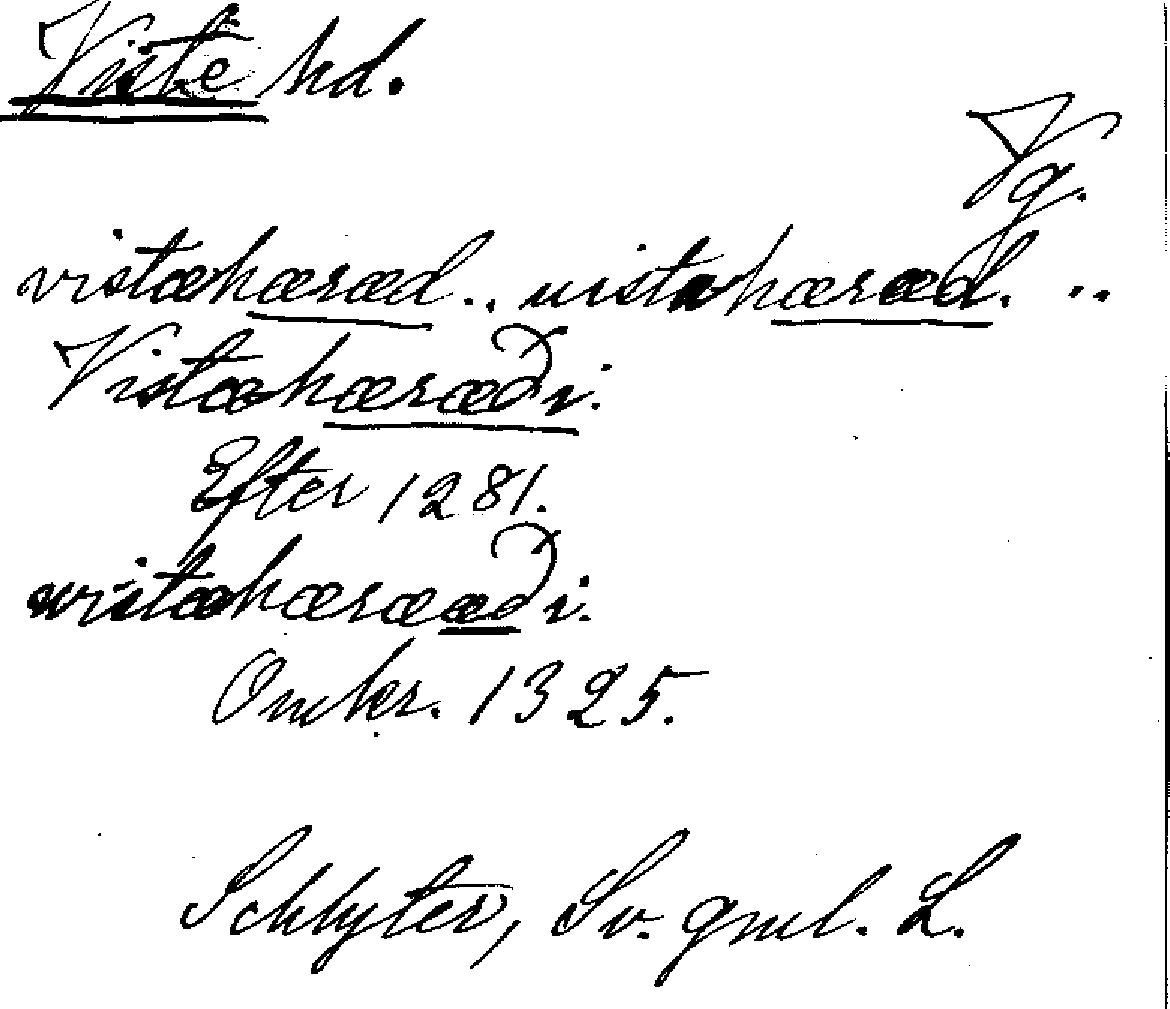 Viste hd.
Vg.
vistæhæræd.. uistahæræd. ..
Vistæhæræði.
Efter 1281.
vistæhæræædi.
Omkr. 1325.
Schlyter, Sv. gml. L.